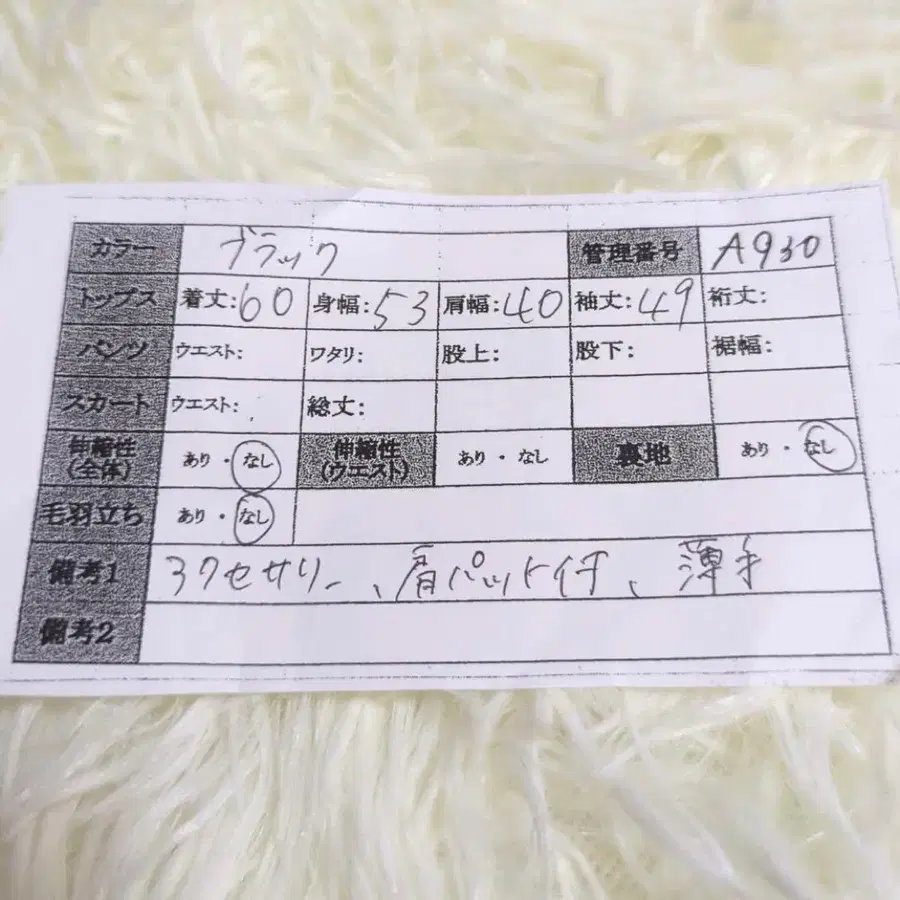 カラー ブラック 管理番号 A930
トップス 着丈:60 身幅:53 肩幅:40 袖丈:49 裄丈:
パンツ ウエスト: ワタリ: 股上: 股下: 裾幅:
スカート ウエスト: 総丈:
伸縮性(全体) あり・なし 伸縮性(ウエスト) あり・なし 裏地 あり・なし
毛羽立ち あり・なし
備考1 アクセサリー、肩パット付、薄手
備考2